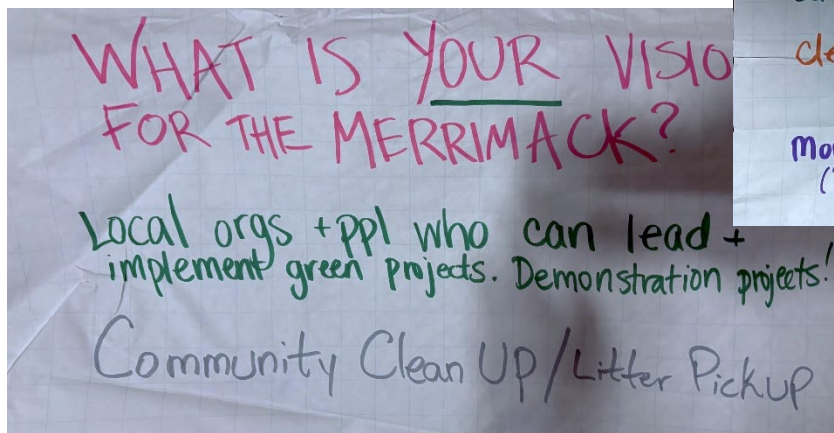 WHAT IS YOUR VISIO
FOR THE MERRIMACK?
Local orgs + ppl who can lead +
implement green projects. Demonstration projects!
Community Clean Up/Litter Pickup